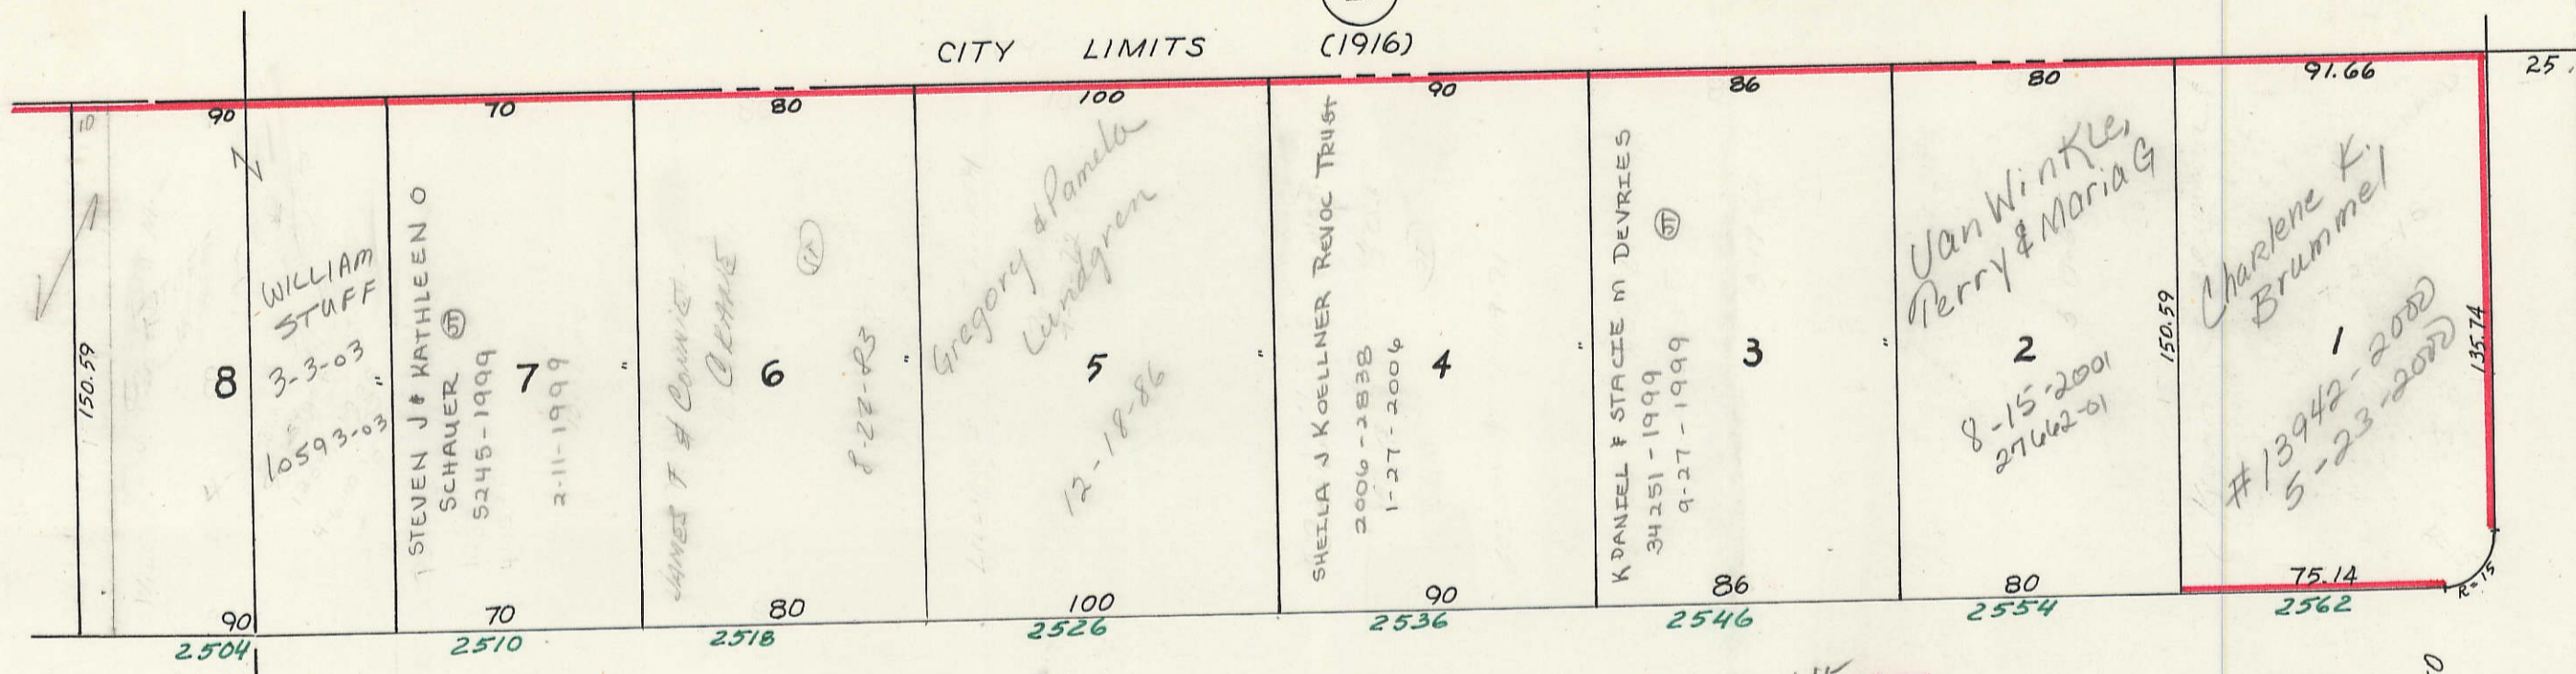 CITY LIMITS (1916)
90
70
80
100
90
86
80
91.66
25.
10
150.59
8
WILLIAM
STUFF
3-3-03
"
10593-03
STEVEN J & KATHLEEN O
SCHAUER JT
5245-1999
2-11-1999
7
"
JAMES F & CONNIE
CRANE
JT
6
8-22-83
"
Gregory & Pamella
Lundgren
5
12-18-86
"
SHEILA J KOELLNER REVOC TRUST
2006-2838
1-27-2006
4
"
K DANIEL & STACIE M DEVRIES
JT
34251-1999
9-27-1999
3
"
Van Winkle,
Terry & Maria G
2
8-15-2001
27662-01
150.59
Charlene K.
Brummel
1
#13942-2000
5-23-2000
135.74
R=15
90
70
80
100
90
86
80
75.14
2504
2510
2518
2526
2536
2546
2554
2562